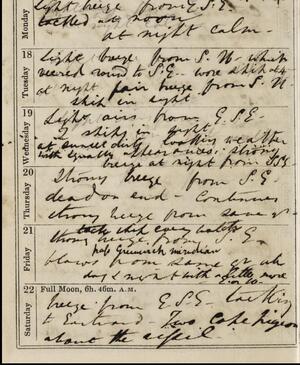 Monday
light breeze from E.S.E.
tackled at noon
at night calm
18
Tuesday
Light breeze from S.W. which
veered round to S.E. wore ship at 4
at night fair breeze from S.W
ship in sight
19
Wednesday
Light airs from E.S.E
2 ships in sight
at sunset dirty looking weather
with squally appearances; strong
breeze at night from S.E
20
Thursday
Strong breeze from S.E
dead on end - Continues
strong breeze from same qr
21
Friday
tack ship every watch
strong breeze from S.E
pass Greenwich meridian
blows same qr
day & night with a little more
E in it
22
Saturday
Full Moon, 6h. 46m. A.M.
breeze from E.S.E. tacking
to Eastward - Two cape pigeons
about the